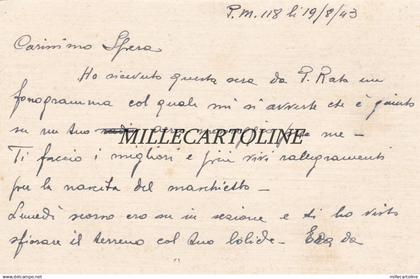 P.M. 118 li 19/8/43
Carissimo Spera
Ho ricevuto questa sera da P. Rata un
fonogramma col quale mi si avverte che è giunto
su un tuo me –
MILLECARTOLINE
Ti faccio i migliori e più vivi rallegramenti
per la nascita del maschietto –
Lunedì scorso ero su in sezione e ti ho visto
sfiorare il terreno col tuo bolide – da